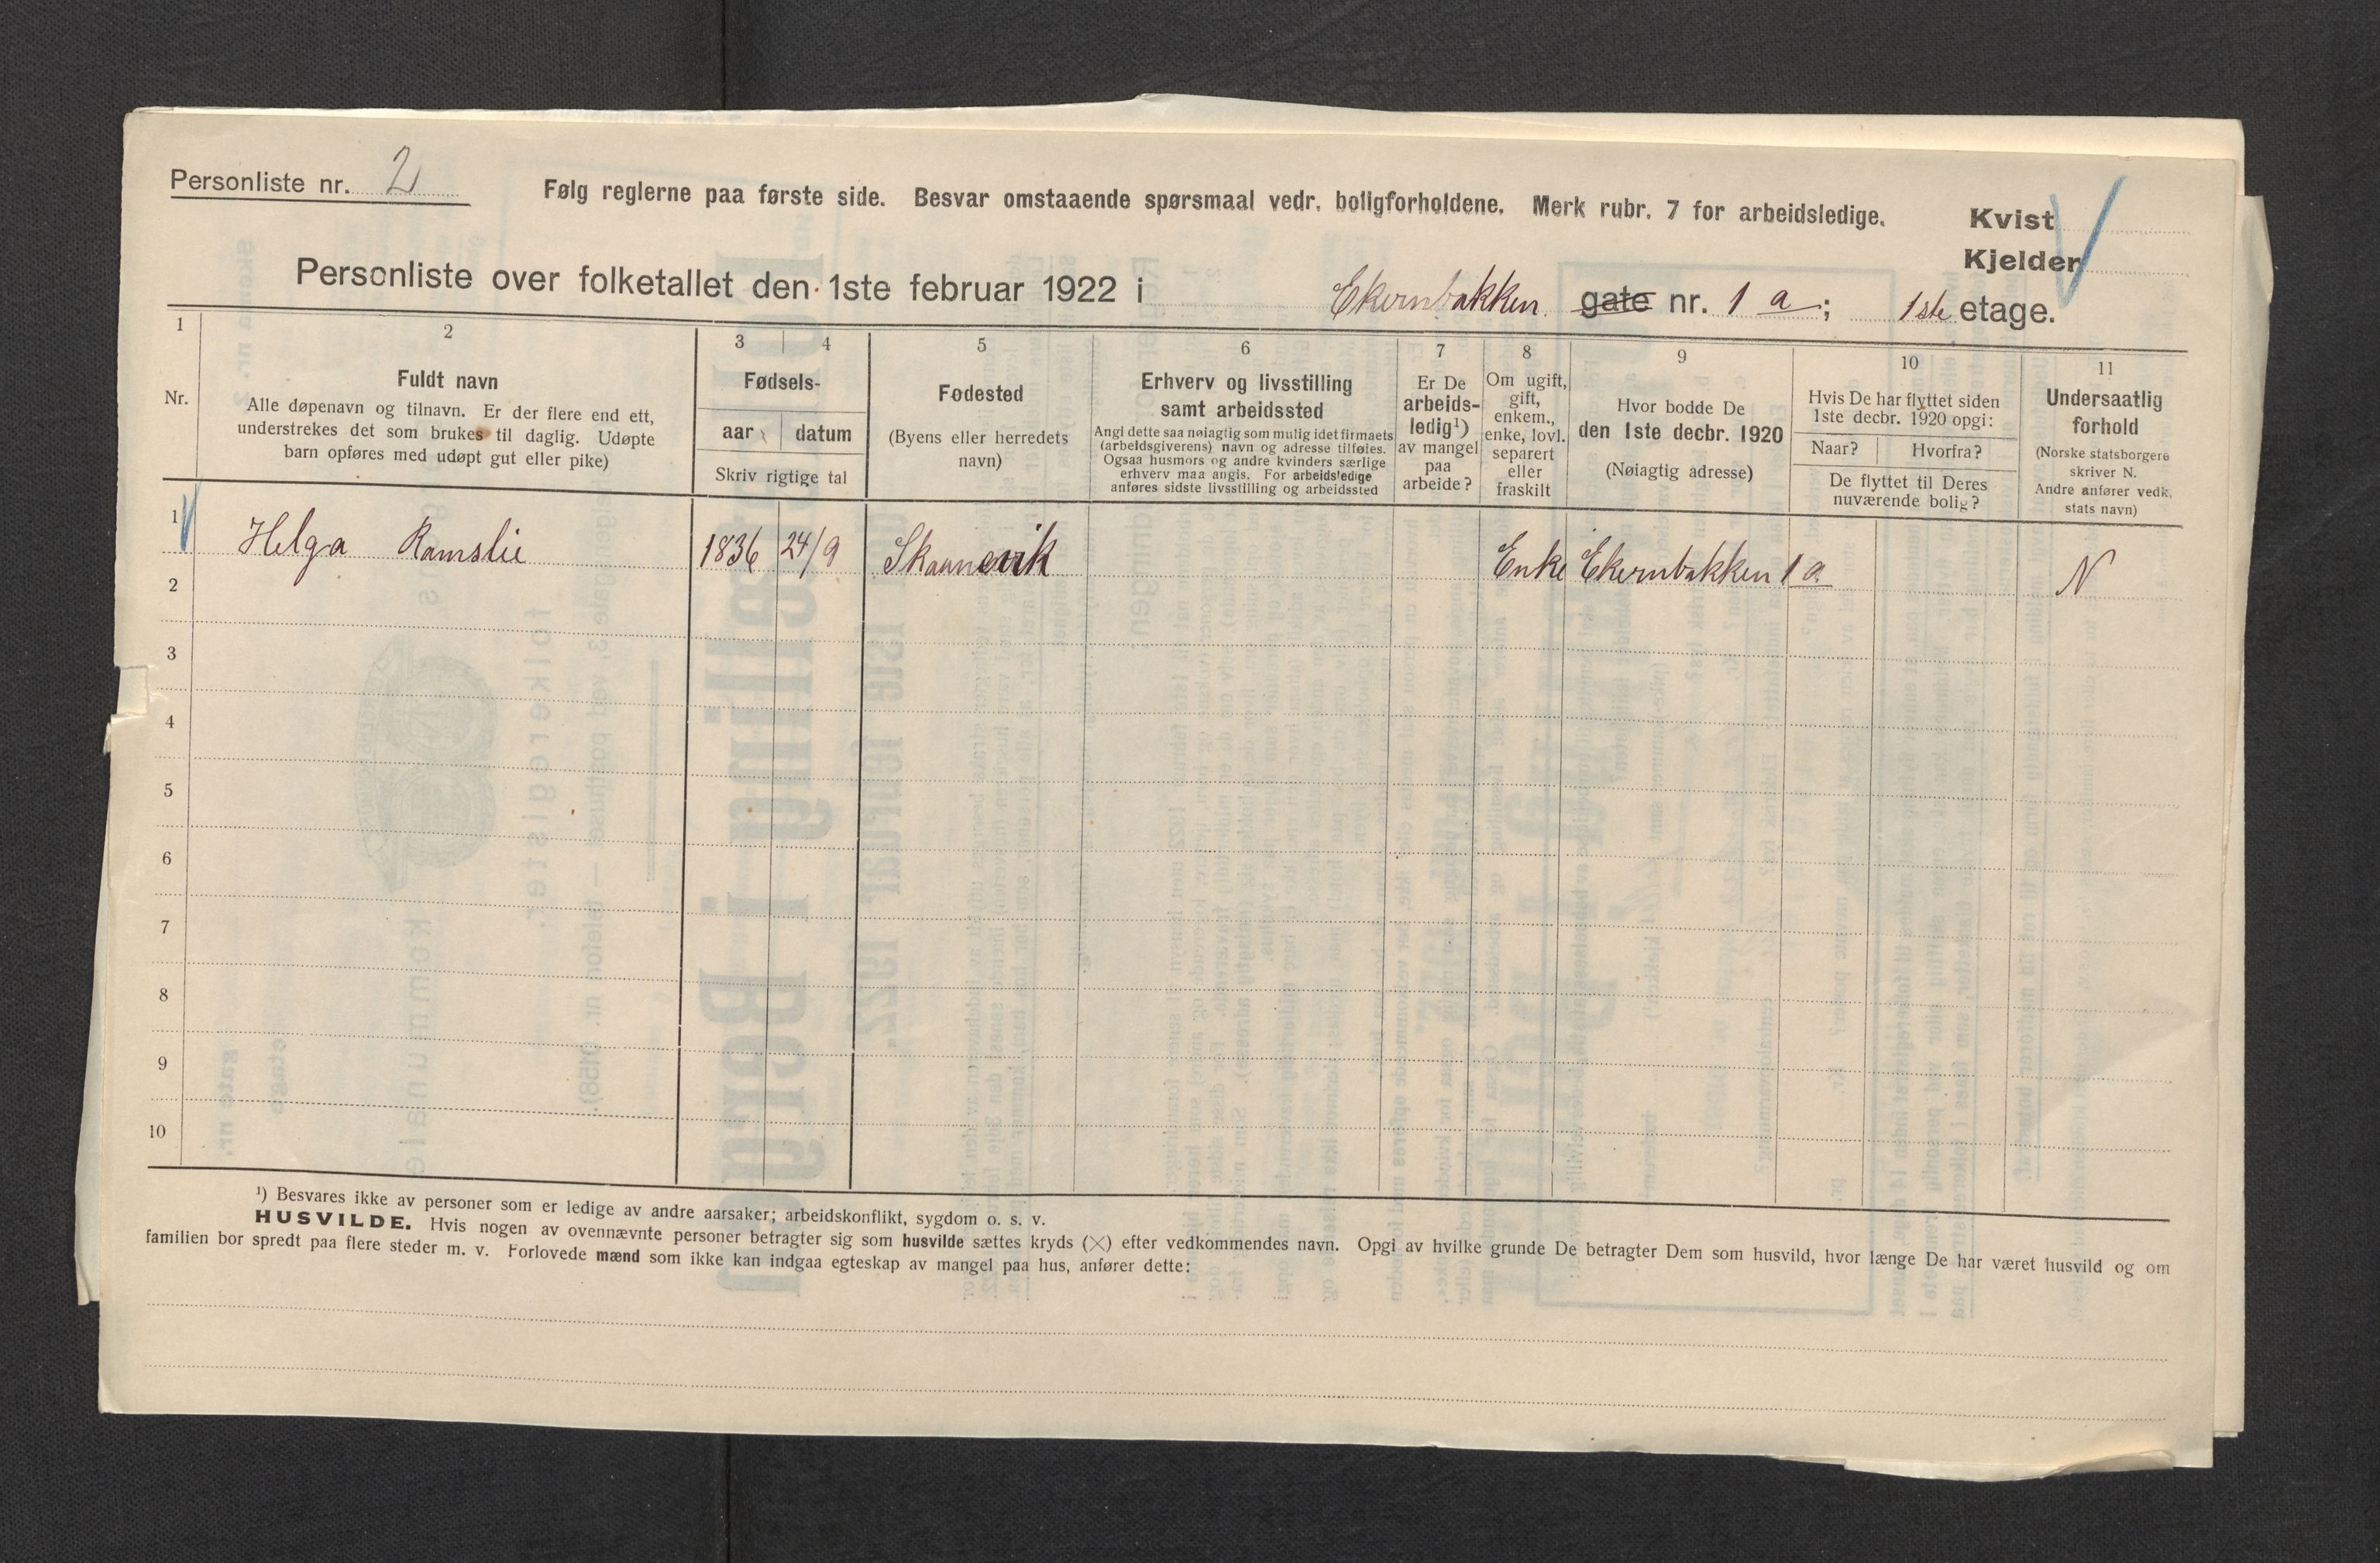 Personliste nr. 2
Følg reglerne paa første side. Besvar omstaaende spørsmaal vedr. boligforholdene. Merk rubr. 7 for arbeidsledige.
Kvist
Kjelder
Personliste over folketallet den 1ste februar 1922 i Ekernbakken gate nr. 1 a; 1ste etage.
1
Nr.
2
Fuldt navn
Alle døpenavn og tilnavn. Er der flere end ett,
understrekes det som brukes til daglig. Udøpte
barn opføres med udøpt gut eller pike)
3 4
Fødsels-
aar datum
Skriv rigtige tal
5
Fødested
(Byens eller herredets
navn)
6
Erhverv og livsstilling
samt arbeidssted
Angi dette saa nøiagtig som mulig idet firmaets
(arbeidsgiverens) navn og adresse tilføies.
Ogsaa husmors og andre kvinders særlige
erhverv maa angis. For arbeidsledige
anføres sidste livsstilling og arbeidssted
7
Er De
arbeids-
ledig¹)
av mangel
paa
arbeide?
8
Om ugift,
gift,
enkem.,
enke, lovl.
separert
eller
fraskilt
9
Hvor bodde De
den 1ste decbr. 1920
(Nøiagtig adresse)
10
Hvis De har flyttet siden
1ste decbr. 1920 opgi:
Naar? Hvorfra?
De flyttet til Deres
nuværende bolig?
11
Undersaatlig
forhold
(Norske statsborgere
skriver N.
Andre anfører vedk.
stats navn)
1 Helga Ramslie 1836 24/9 Skaanevik Enke Ekernbakken 1 a N
2
3
4
5
6
7
8
9
10
¹) Besvares ikke av personer som er ledige av andre aarsaker; arbeidskonflikt, sygdom o. s. v.
HUSVILDE. Hvis nogen av ovennævnte personer betragter sig som husvilde sættes kryds (×) efter vedkommendes navn. Opgi av hvilke grunde De betragter Dem som husvild, hvor længe De har været husvild og om
familien bor spredt paa flere steder m. v. Forlovede mænd som ikke kan indgaa egteskap av mangel paa hus, anfører dette: